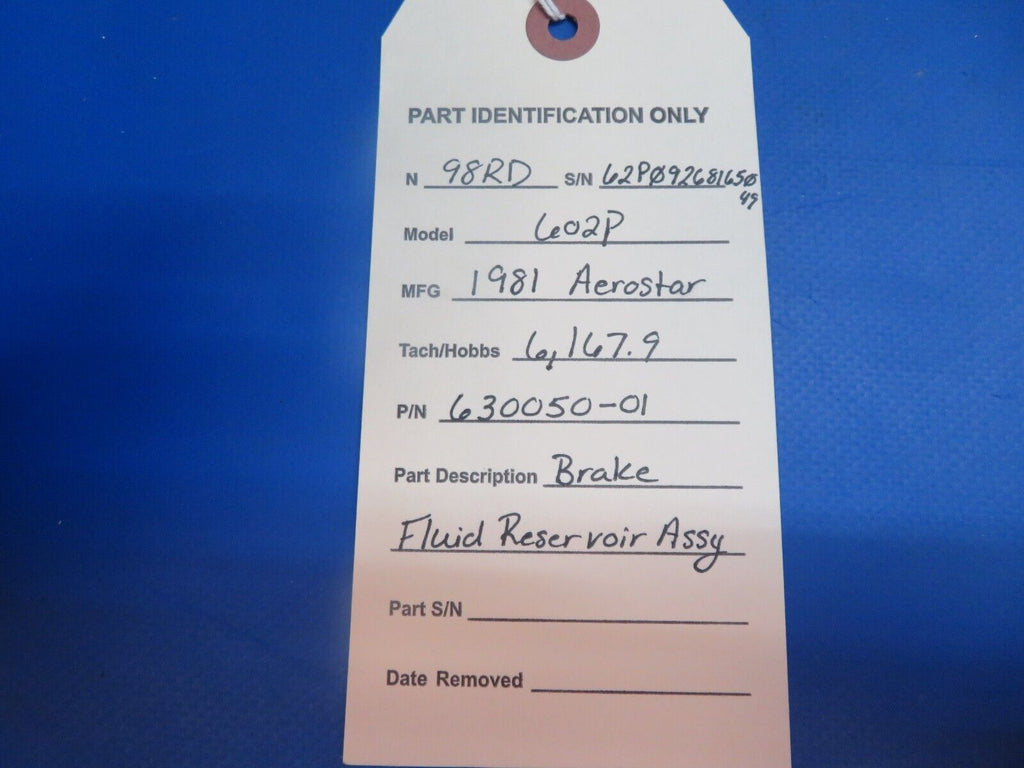 PART IDENTIFICATION ONLY
N 98RD S/N 62PØ92681650
49
Model 602P
MFG 1981 Aerostar
Tach/Hobbs 6,167.9
P/N 630050-01
Part Description Brake
Fluid Reservoir Assy
Part S/N
Date Removed